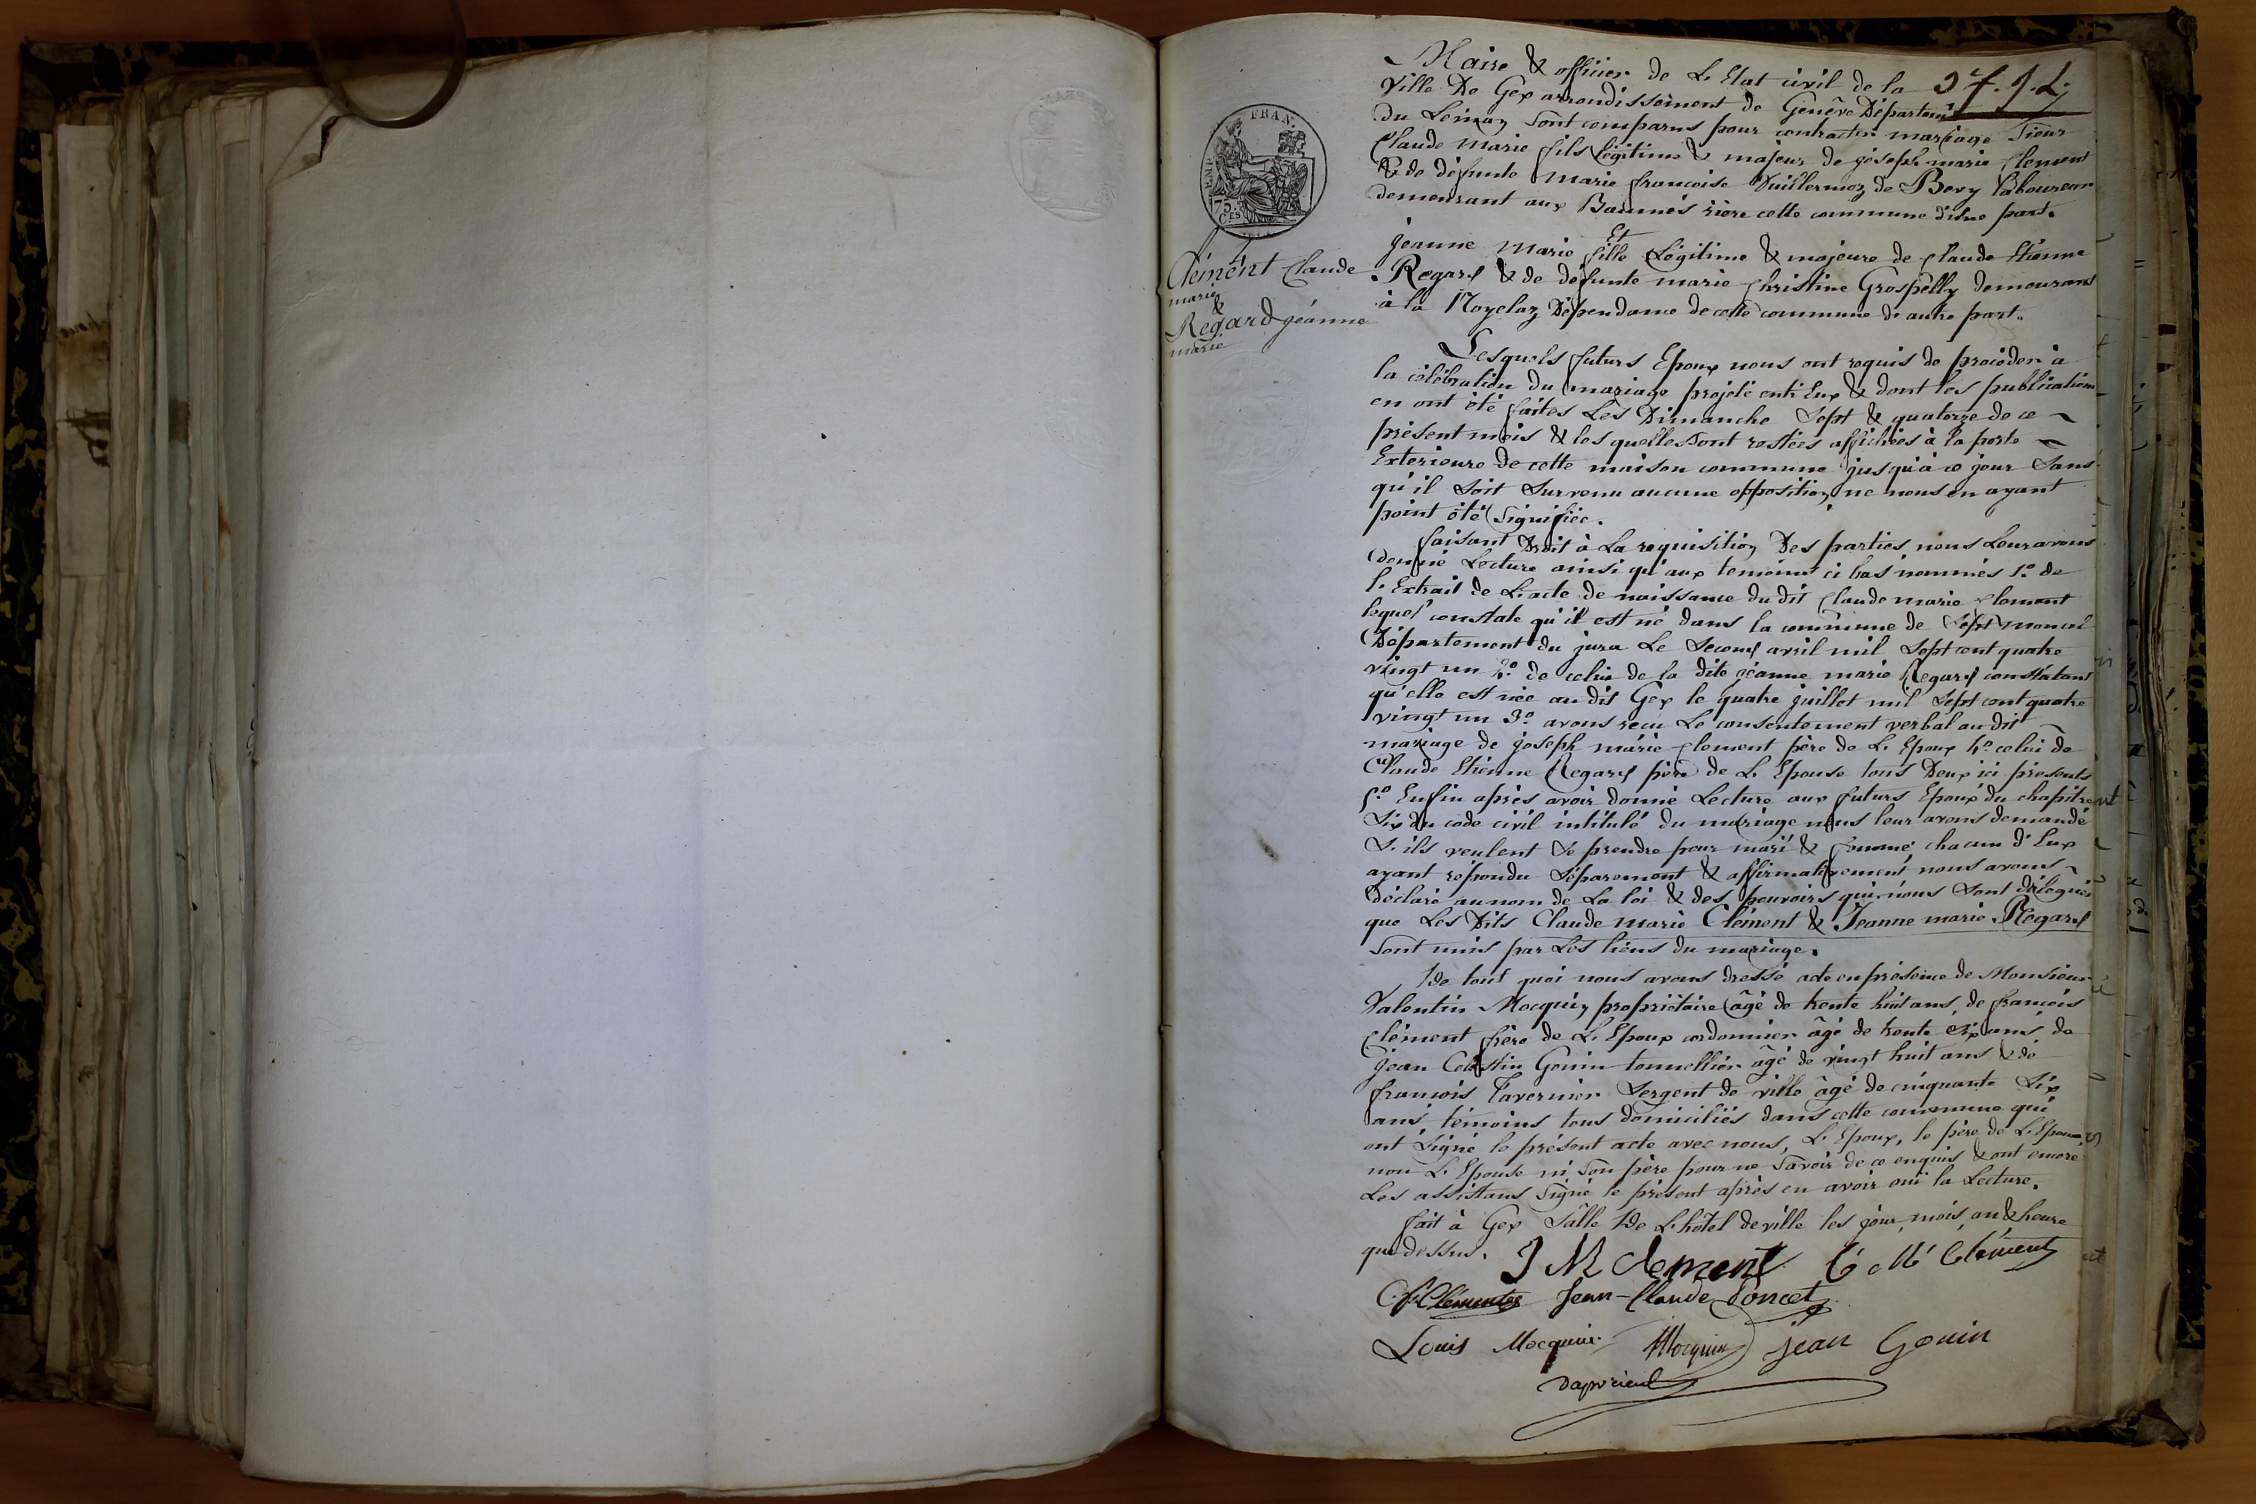 Maire & officier de L'Etat civil de la
Ville De Gex arrondissement de Genêve Départemt
du Leman Sont comparus pour contracter mariage Sieur
Claude marie fils légitime & majeur de joseph marie Clement
& de défunte marie françoise Vuillermoz de Bevy laboureur
demeurant aux Baumes rière cette commune d'une part.
Et
jeanne marie fille Légitime & majeure de Claude Etienne
Regard & de défunte marie Christine Grospelly demeurans
à la Noyelaz Dépendame de cette commune de autre part.
FRAN.
75.
CES
Clément Claude
marie
&
Regard jéanne
marie
Lesquels futurs Epoux nous ont requis de procéder à
la célébration du mariage projeté entr'Eux & dont les publications
en ont été faites Les Dimanche Sept & quatorze de ce
présent mois & les quelles sont restées affichées à la porte
Exterieure de cette maison commune jusqu'à ce jour Sans
qu'il Soit Survenu aucune opposition, ne nous en ayant
point été Signifiée.
faisant Droit à La requisition Des parties, nous Leur avons
donné Lecture ainsi qu'aux temoins ci bas nommés 1.º de
l'Extrait de L'acte de naissance du dit Claude marie Clement
lequel constate qu'il est né dans la commune de Sept moncel
Département du jura Le Second avril mil Sept cent quatre
vingt un 2.º de celui de la dite jéanne marie Regard constatant
qu'elle est née au dit Gex le quatre juillet mil Sept cent quatre
vingt un 3.º avons reçu Le consentement verbal au dit
mariage de joseph marie Clement père de L'Epoux 4.º celui de
Claude Etienne Regard père de L'Epouse tous Deux ici présents
5.º Enfin après avoir donné Lecture aux futurs Epoux du chapitre
Six du code civil intitulé du mariage nous leur avons demandé
S'ils veulent Se prendre pour mari & femme, chacun d'Eux
ayant répondu Séparement & affirmativement nous avons
déclaré au nom de La loi & des pouvoirs qui nous Sont délégués
que Les Dits Claude marie Clément & Jeanne marie Regard
Sont unis par Les liens du mariage.
De tout quoi nous avons dressé acte en présence de Monsieur
Valentin Mocquin, propriétaire âgé de trente huit ans, de françois
Clément frère de L'Epoux cordonnier âgé de trente six ans, de
Jean Celestin Gouin tonnellier âgé de vingt huit ans & de
françois Tavernier Sergent de ville âgé de cinquante Six
ans, témoins tous domiciliés dans cette commune qui
ont Signé le présent acte avec nous, L'Epoux, le père de L'Epoux
non L'Epouse ni Son père pour ne Savoir de ce enquis & ont encore
Les assistans Signé le présent après en avoir oui la Lecture.
fait à Gex Salle De L'hôtel de ville les jour, mois, an & heure
que dessus. J M clement C M Clément
Jean-Claude Poncet
Louis Mocquin Mocquin jean Gouin